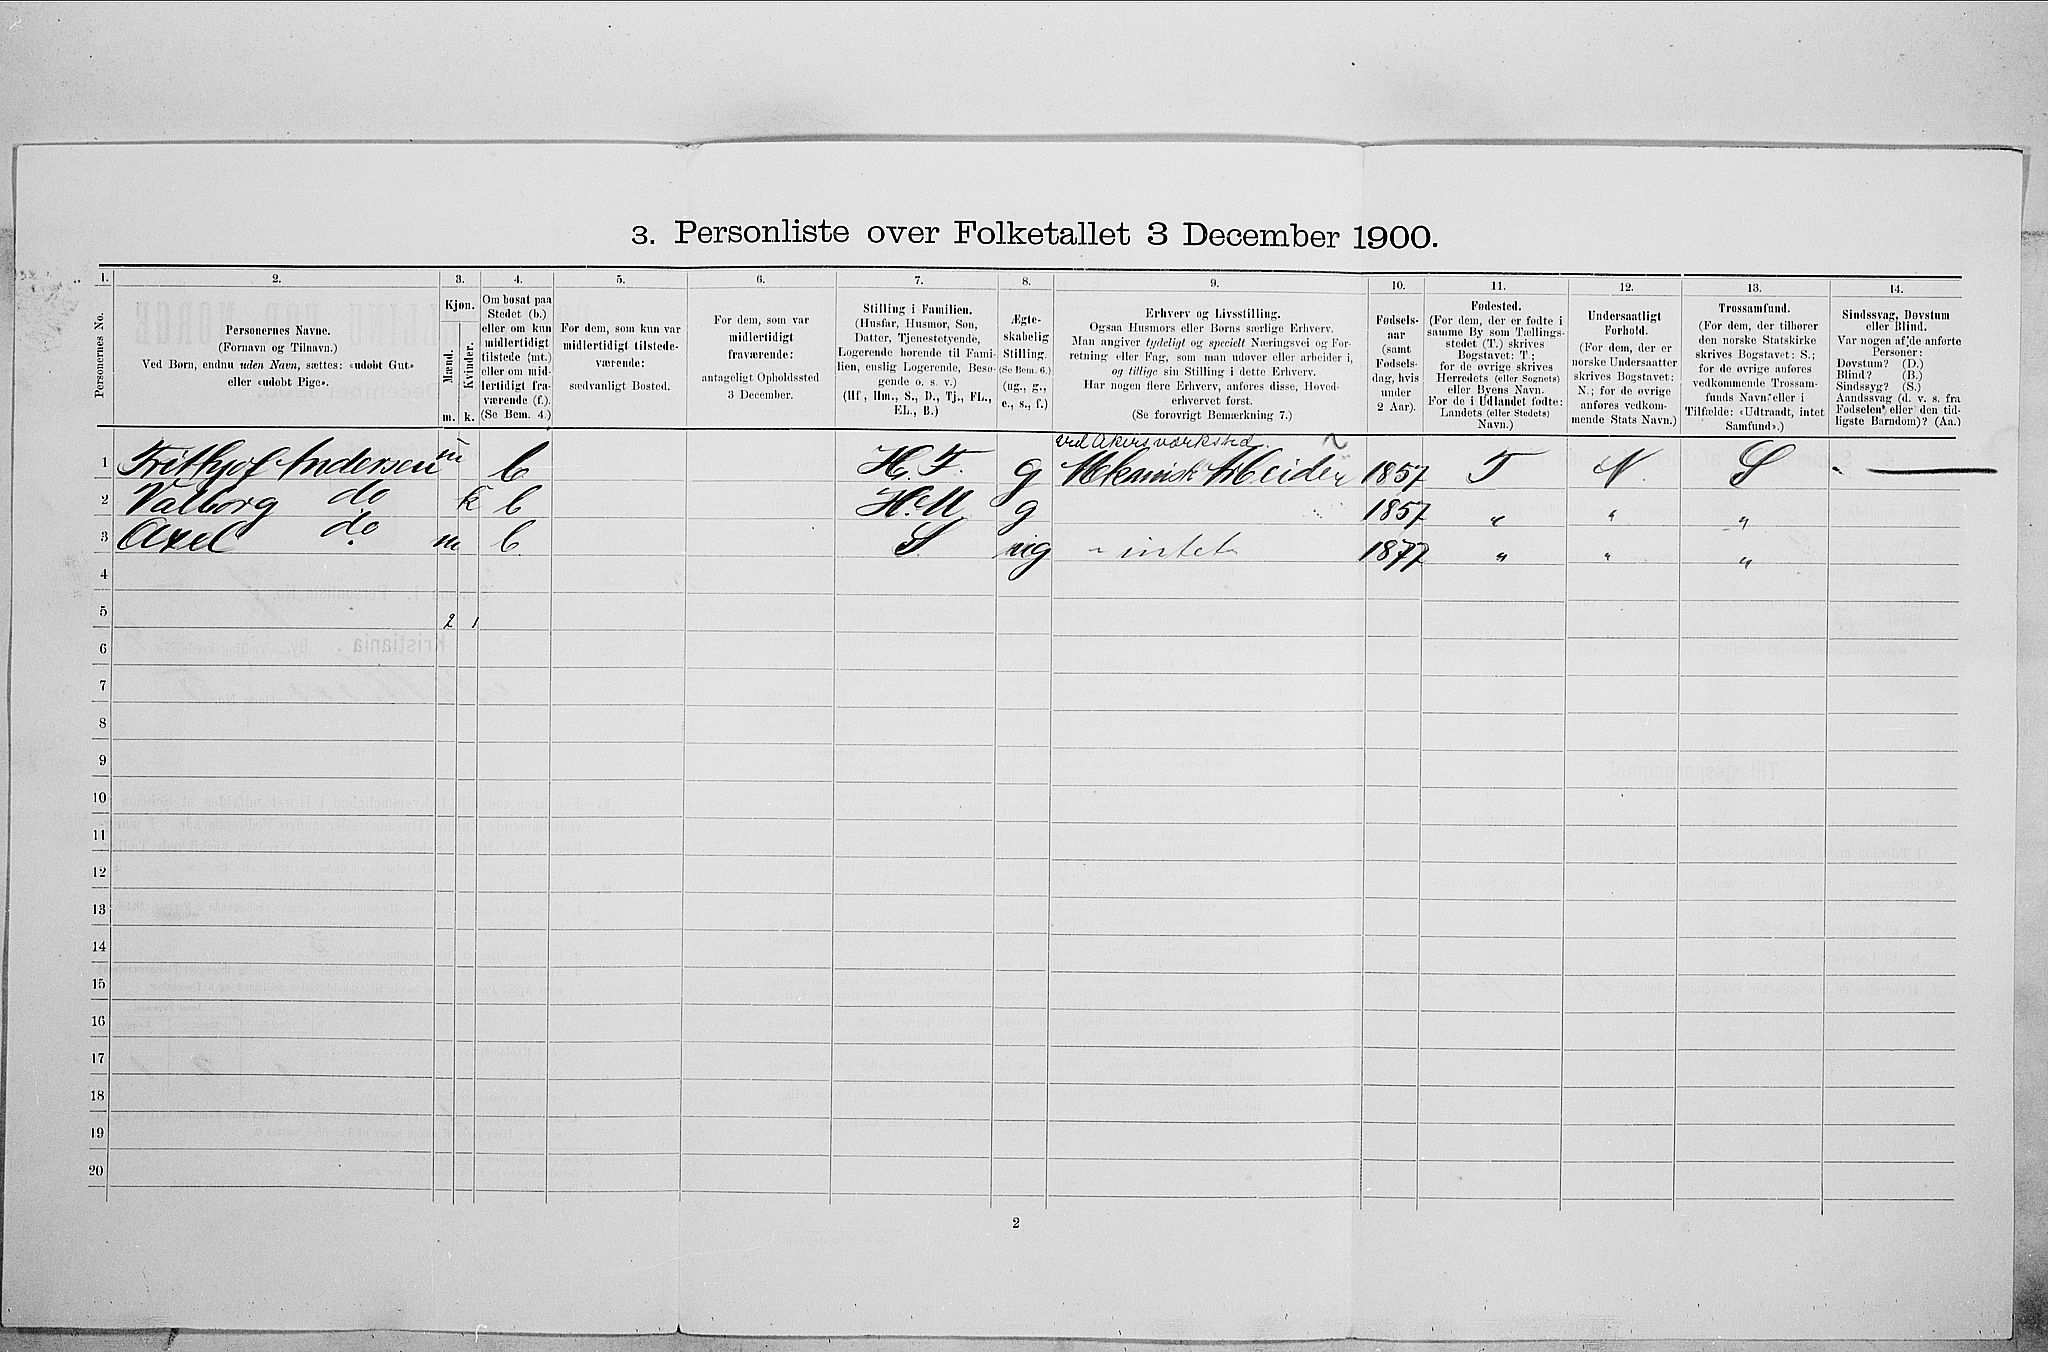 3. Personliste over Folketallet 3 December 1900.
1. 2. 3. 4. 5. 6. 7. 8. 9. 10. 11. 12. 13. 14.
Personernes No.
Personernes Navne.
(Fornavn og Tilnavn.)
Ved Børn, endnu uden Navn, sættes: «udøbt Gut»
eller «udøbt Pige».
Kjøn.
Mænd.
Kvinder.
m. k.
Om bosat paa
Stedet (b.)
eller om kun
midlertidigt
tilstede (mt.)
eller om mid-
lertidigt fra-
værende (f.).
(Se Bem. 4.)
For dem, som kun var
midlertidigt tilstede-
værende:
sædvanligt Bosted.
For dem, som var
midlertidigt
fraværende:
antageligt Opholdssted
3 December.
Stilling i Familien.
(Husfar, Husmor, Søn,
Datter, Tjenestetyende,
Logerende hørende til Fami-
lien, enslig Logerende, Besø-
gende o. s. v.)
(Hf, Hm., S., D., Tj., FL.,
EL., B.)
Ægte-
skabelig
Stilling.
(Se Bem. 6.)
(ug., g.,
e., s., f.)
Erhverv og Livsstilling.
Ogsaa Husmors eller Børns særlige Erhverv.
Man angiver tydeligt og specielt Næringsvei og For-
retning eller Fag, som man udøver eller arbeider i,
og tillige sin Stilling i dette Erhverv.
Har nogen flere Erhverv, anføres disse, Hoved-
erhvervet først.
(Se forøvrigt Bemærkning 7.)
Fødsels-
aar
(samt
Fødsels-
dag, hvis
under
2 Aar).
Fødested.
(For dem, der er fødte i
samme By som Tællings-
stedet (T.) skrives
Bogstavet: T;
for de øvrige skrives
Herredets (eller Sognets)
eller Byens Navn.
For de i Udlandet fødte:
Landets (eller Stedets)
Navn.)
Undersaatligt
Forhold.
(For dem, der er
norske Undersaatter
skrives Bogstavet:
N.; for de øvrige
anføres vedkom-
mende Stats Navn.)
Trossamfund.
(For dem, der tilhører
den norske Statskirke
skrives Bogstavet: S.;
for de øvrige anføres
vedkommende Trossam-
funds Navn eller i
Tilfælde: «Udtraadt, intet
Samfund».)
Sindssvag, Døvstum
eller Blind.
Var nogen af de anførte
Personer:
Døvstum? (D.)
Blind? (B.)
Sindssyg? (S.)
Aandssvag (d. v. s. fra
Fødselen eller den tid-
ligste Barndom)? (Aa.)
ved Akers værksted.
1 Frithjof Andersen m b H. F. g Mekanisk Arbeider 1857 T N. S
2 Valborg do k b H. M. g 1857 " " "
3 Axel do m b. S ug intet 1877 " " "
4
5 2 1
6
7
8
9
10
11
12
13
14
15
16
17
18
19
20
2